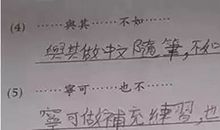 (4) ……與其……不如……
與其做中文隨筆,不如
(5) ……寧可……也不……
寧可做補充練習,也